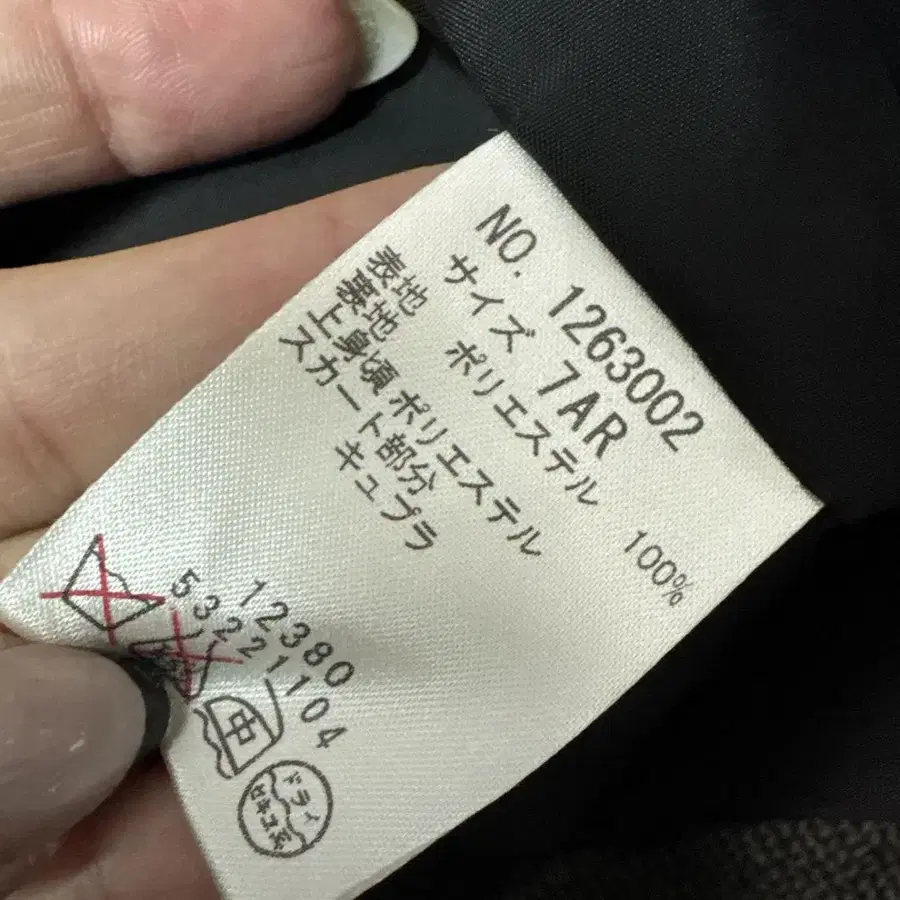 NO. 1263002
サイズ 7AR
表地 ポリエステル 100%
裏地
上身頃 ポリエステル
スカート部分
キュプラ
12380
53221104
中
ドライ
セキユ系